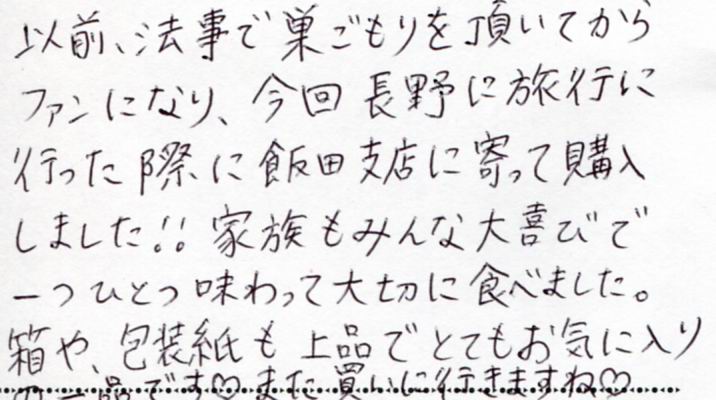 以前、法事で巣ごもりを頂いてから
ファンになり、今回長野に旅行に
行った際に飯田支店に寄って購入
しました!! 家族もみんな大喜びで
一つひとつ味わって大切に食べました。
箱や、包装紙も上品でとてもお気に入り
の一品です♡また買いに行きますね♡